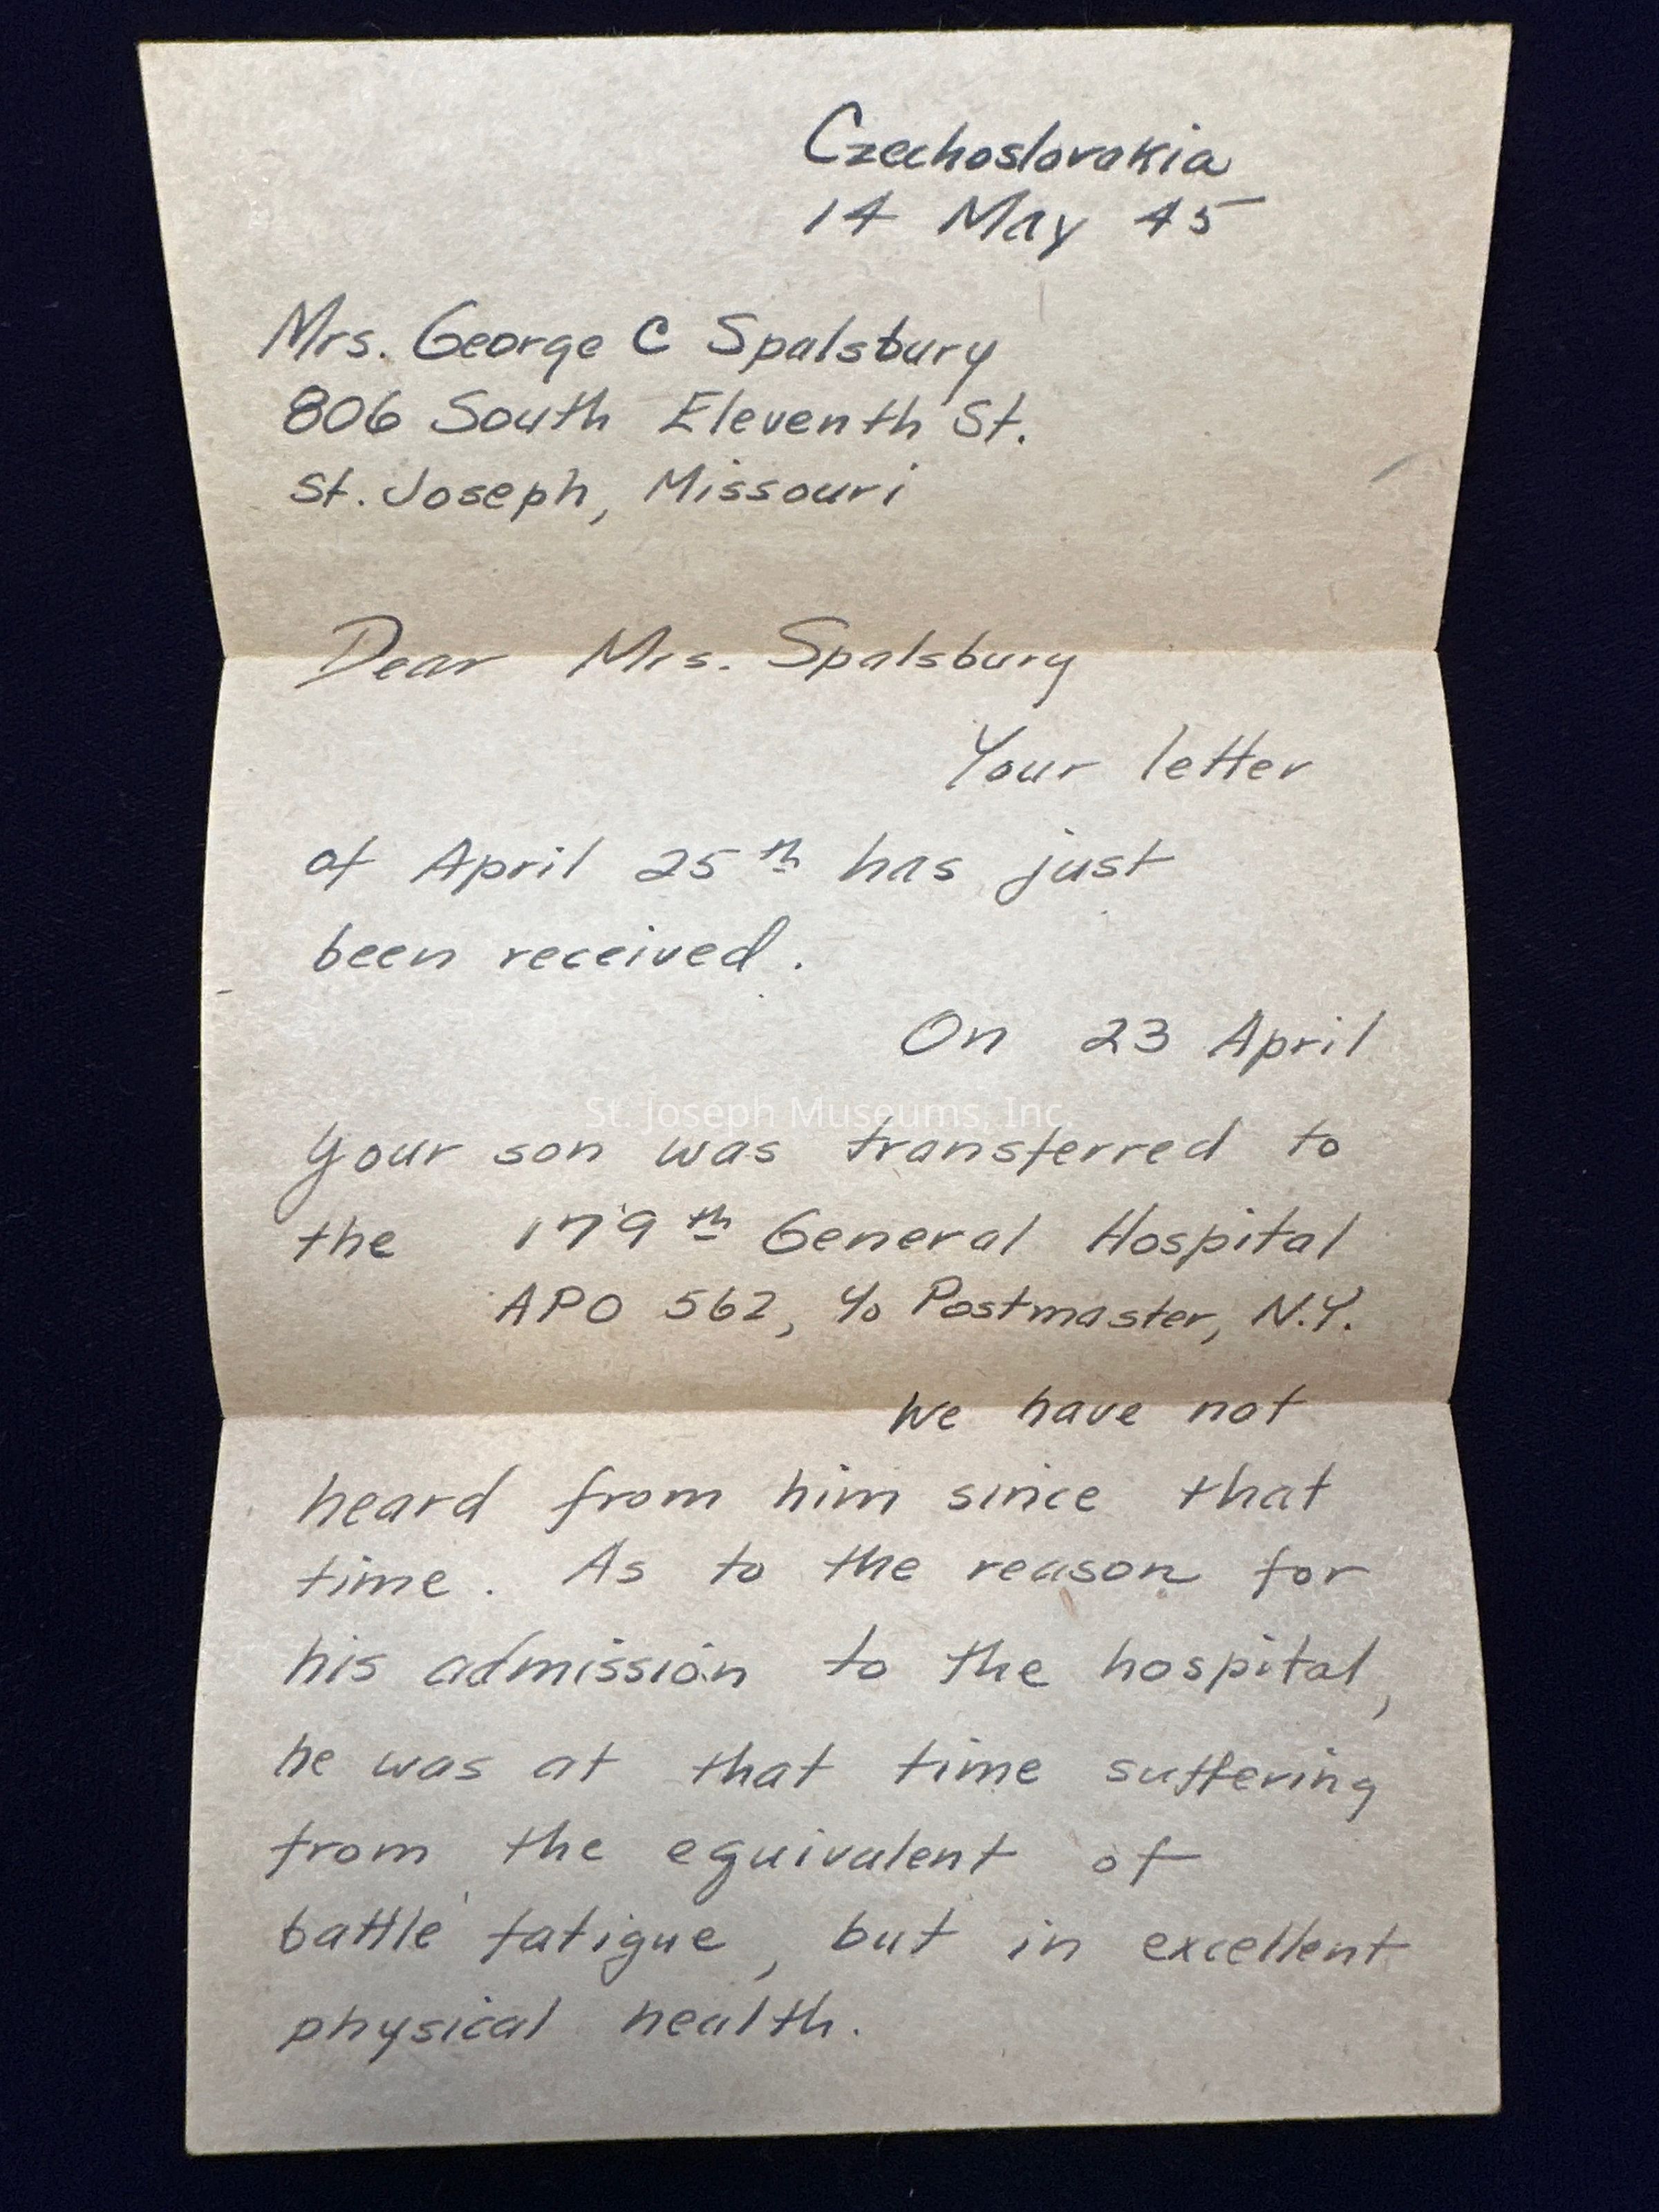 Czechoslovakia
14 May 45
Mrs. George C Spalsbury
806 South Eleventh St.
St. Joseph, Missouri
Dear Mrs. Spalsbury
Your letter
of April 25th has just
been received.
On 23 April
St. Joseph Museums, Inc.
your son was transferred to
the 179th General Hospital
APO 562, c/o Postmaster, N.Y.
We have not
heard from him since that
time. As to the reason for
his admission to the hospital,
he was at that time suffering
from the equivalent of
battle fatigue, but in excellent
physical health.